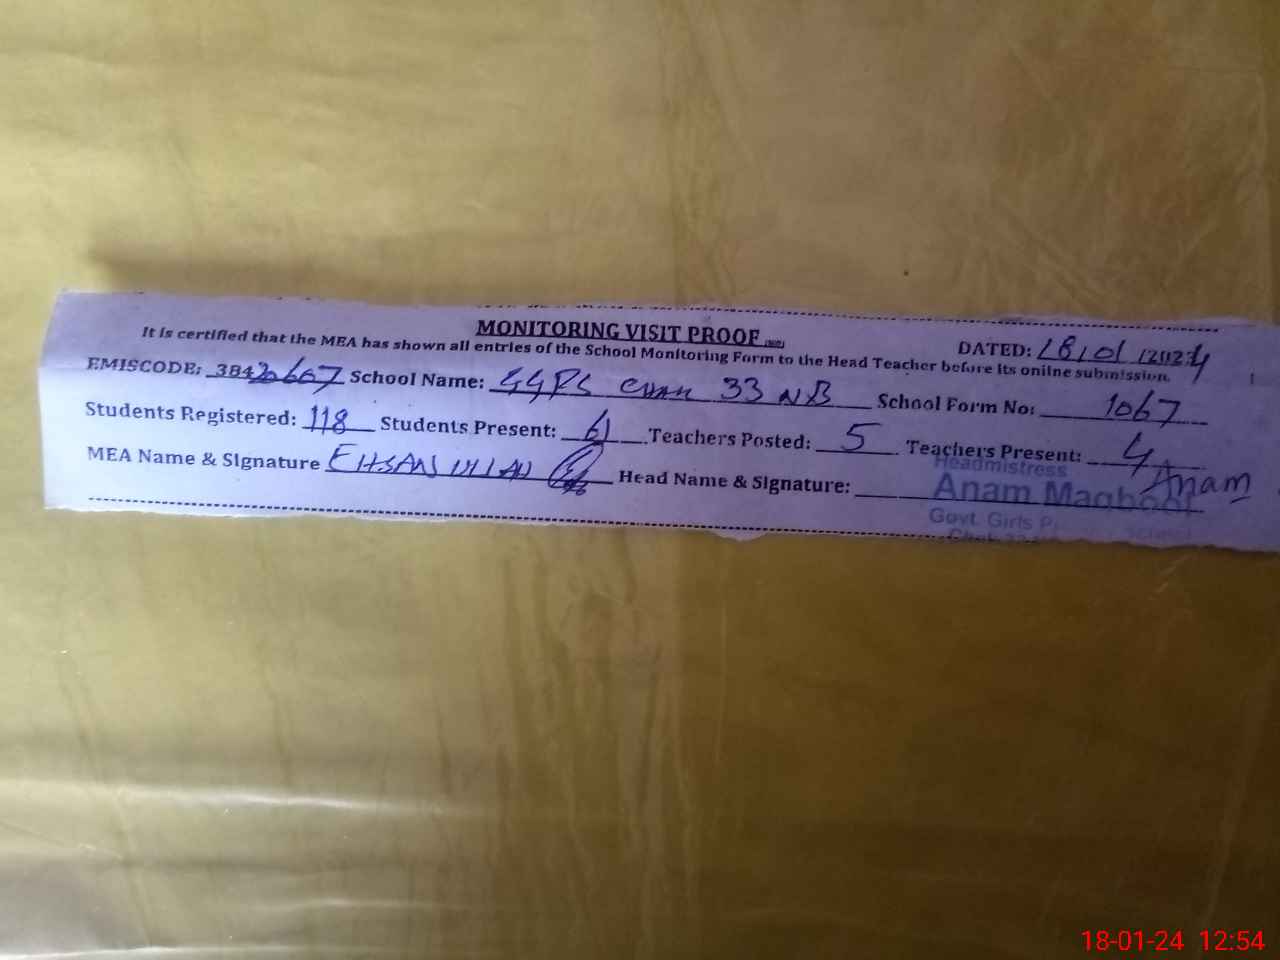 MONITORING VISIT PROOF
DATED: 18/01/2024
It is certified that the MEA has shown all entries of the School Monitoring Form to the Head Teacher before its online submission.
EMISCODE: 38420607 School Name: GGPS Chak 33 NB School Form No: 1067
Students Registered: 118 Students Present: 61 Teachers Posted: 5 Teachers Present: 4
MEA Name & Signature EHSAN ULLAH Head Name & Signature: Anam
Headmistress
Anam Maqbool
Govt. Girls School
18-01-24 12:54